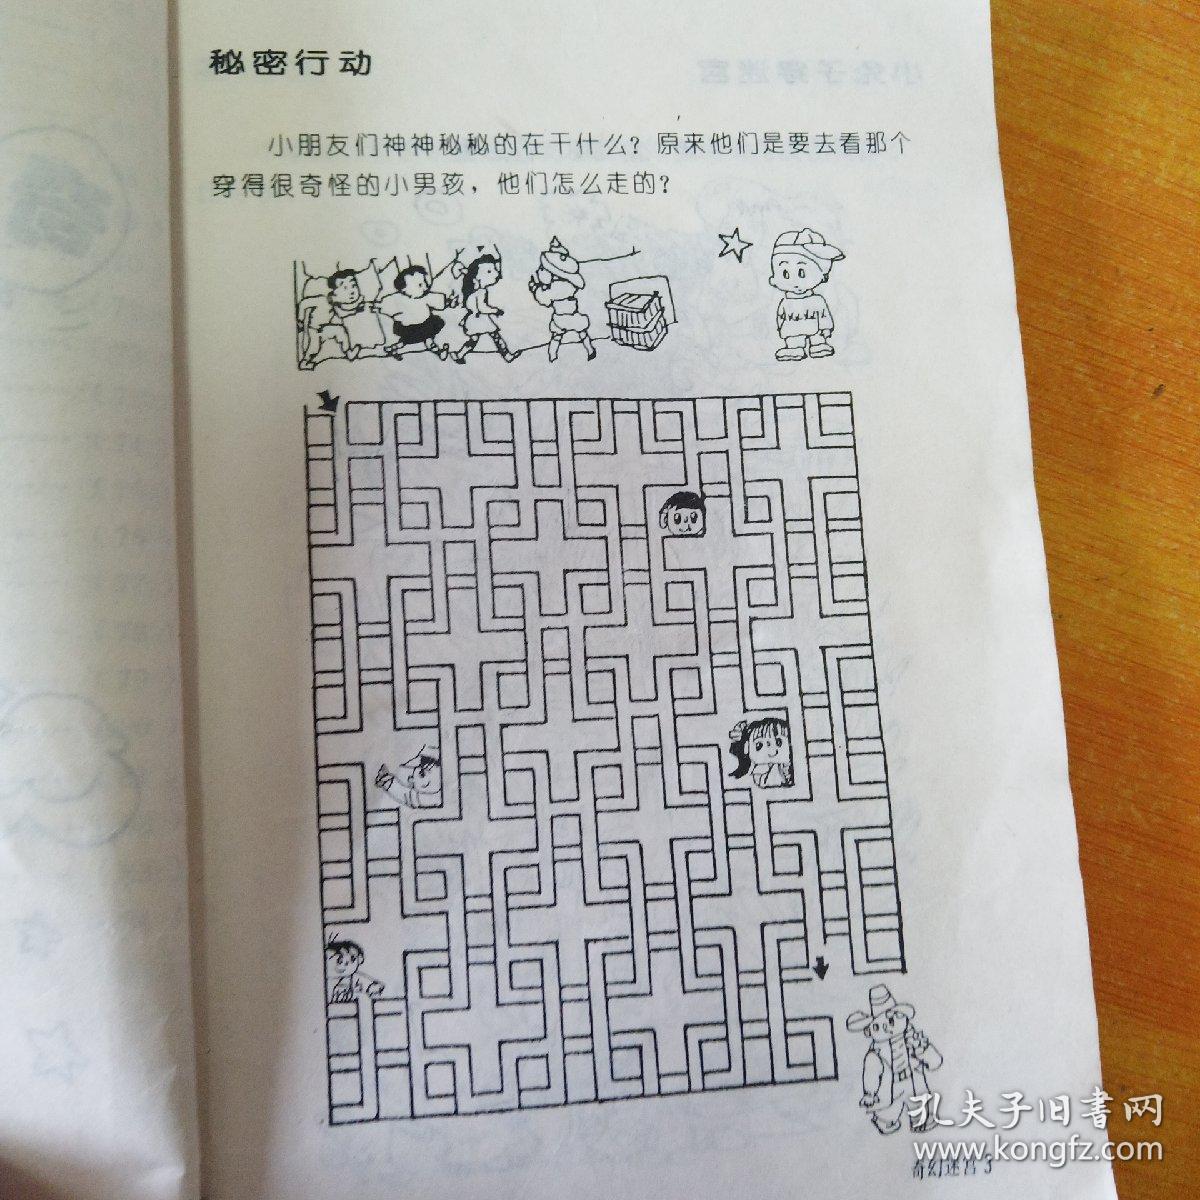 秘密行动
小朋友们神神秘秘的在干什么？原来他们是要去看那个
穿得很奇怪的小男孩，他们怎么走的？
孔夫子旧书网
www.kongfz.com
奇幻迷宫 3